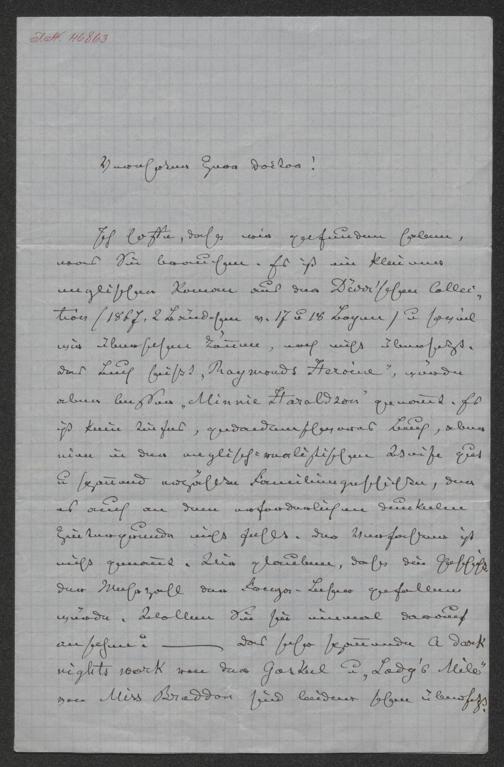 H.N. 46863
Verehrter Herr Doctor!
Ich hoffe, daß wir gefunden haben,
was Sie brauchen. Es ist ein kleiner
englischer Roman aus der Dürr'schen Collec-
tion (1867, 2 Bändchen v. 17 u 18 Bogen) u soviel
wir übersehen können, noch nicht übersetzt.
Das Buch heißt „Raymonds Heroine", würde
aber besser „Minnie Haroldson" genannt. Es
ist kein tiefes, gedankenschweres Buch, aber
eine in der englisch-realistischen Weise gut
u spannend erzählte Familiengeschichte, der
es auch an dem erforderlichen dunkeln
Hintergrunde nicht fehlt. Der Verfasser ist
nicht genannt. Wir glauben, daß die Geschichte
der Mehrzahl der Leser gefallen
würde. Wollen Sie sie einmal darauf
ansehen? — Das sehr spannende A dark
nights work von der Gaskel u „Lady's Mile"
von Miss Braddon sind leider schon übersetzt.